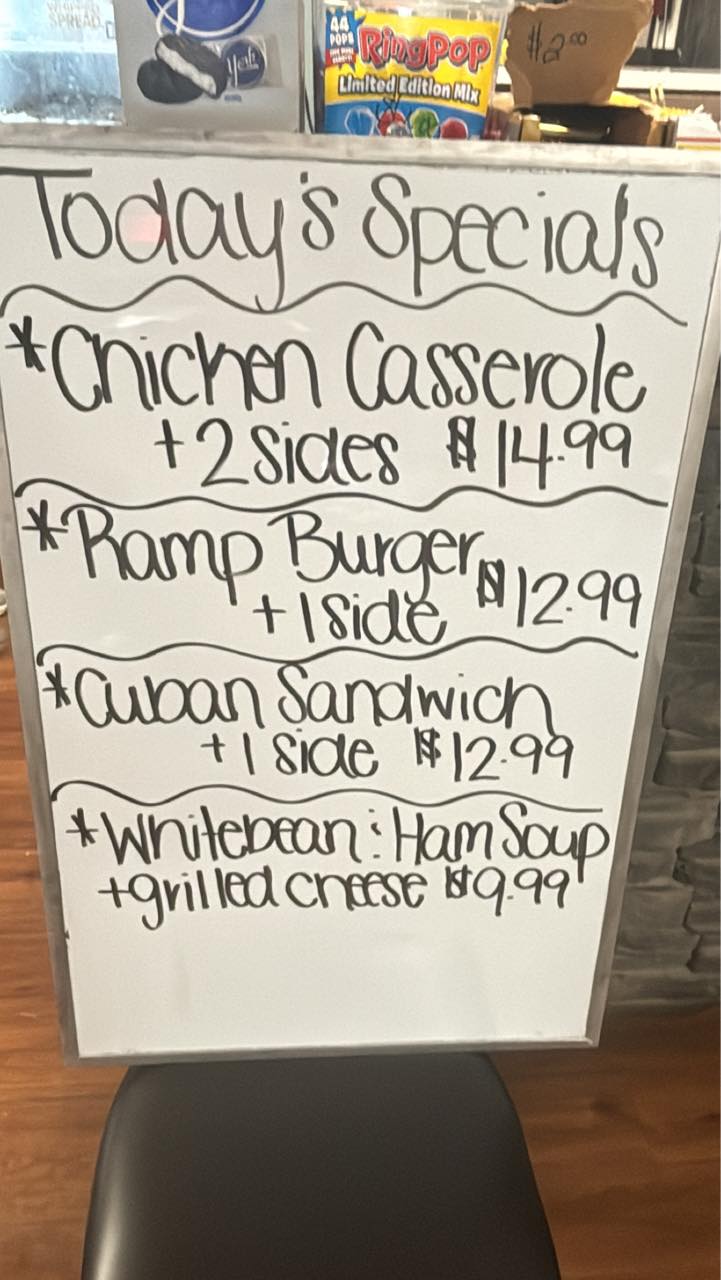 WHIPPED
SPREAD
York
44
POPS
RingPop
Limited Edition Mix
$2.00
Today's Specials
*Chicken Casserole
+2 Sides $14.99
*Ramp Burger
+1 Side $12.99
*Cuban Sandwich
+1 Side $12.99
*Whitebean : Ham Soup
+grilled cheese $9.99